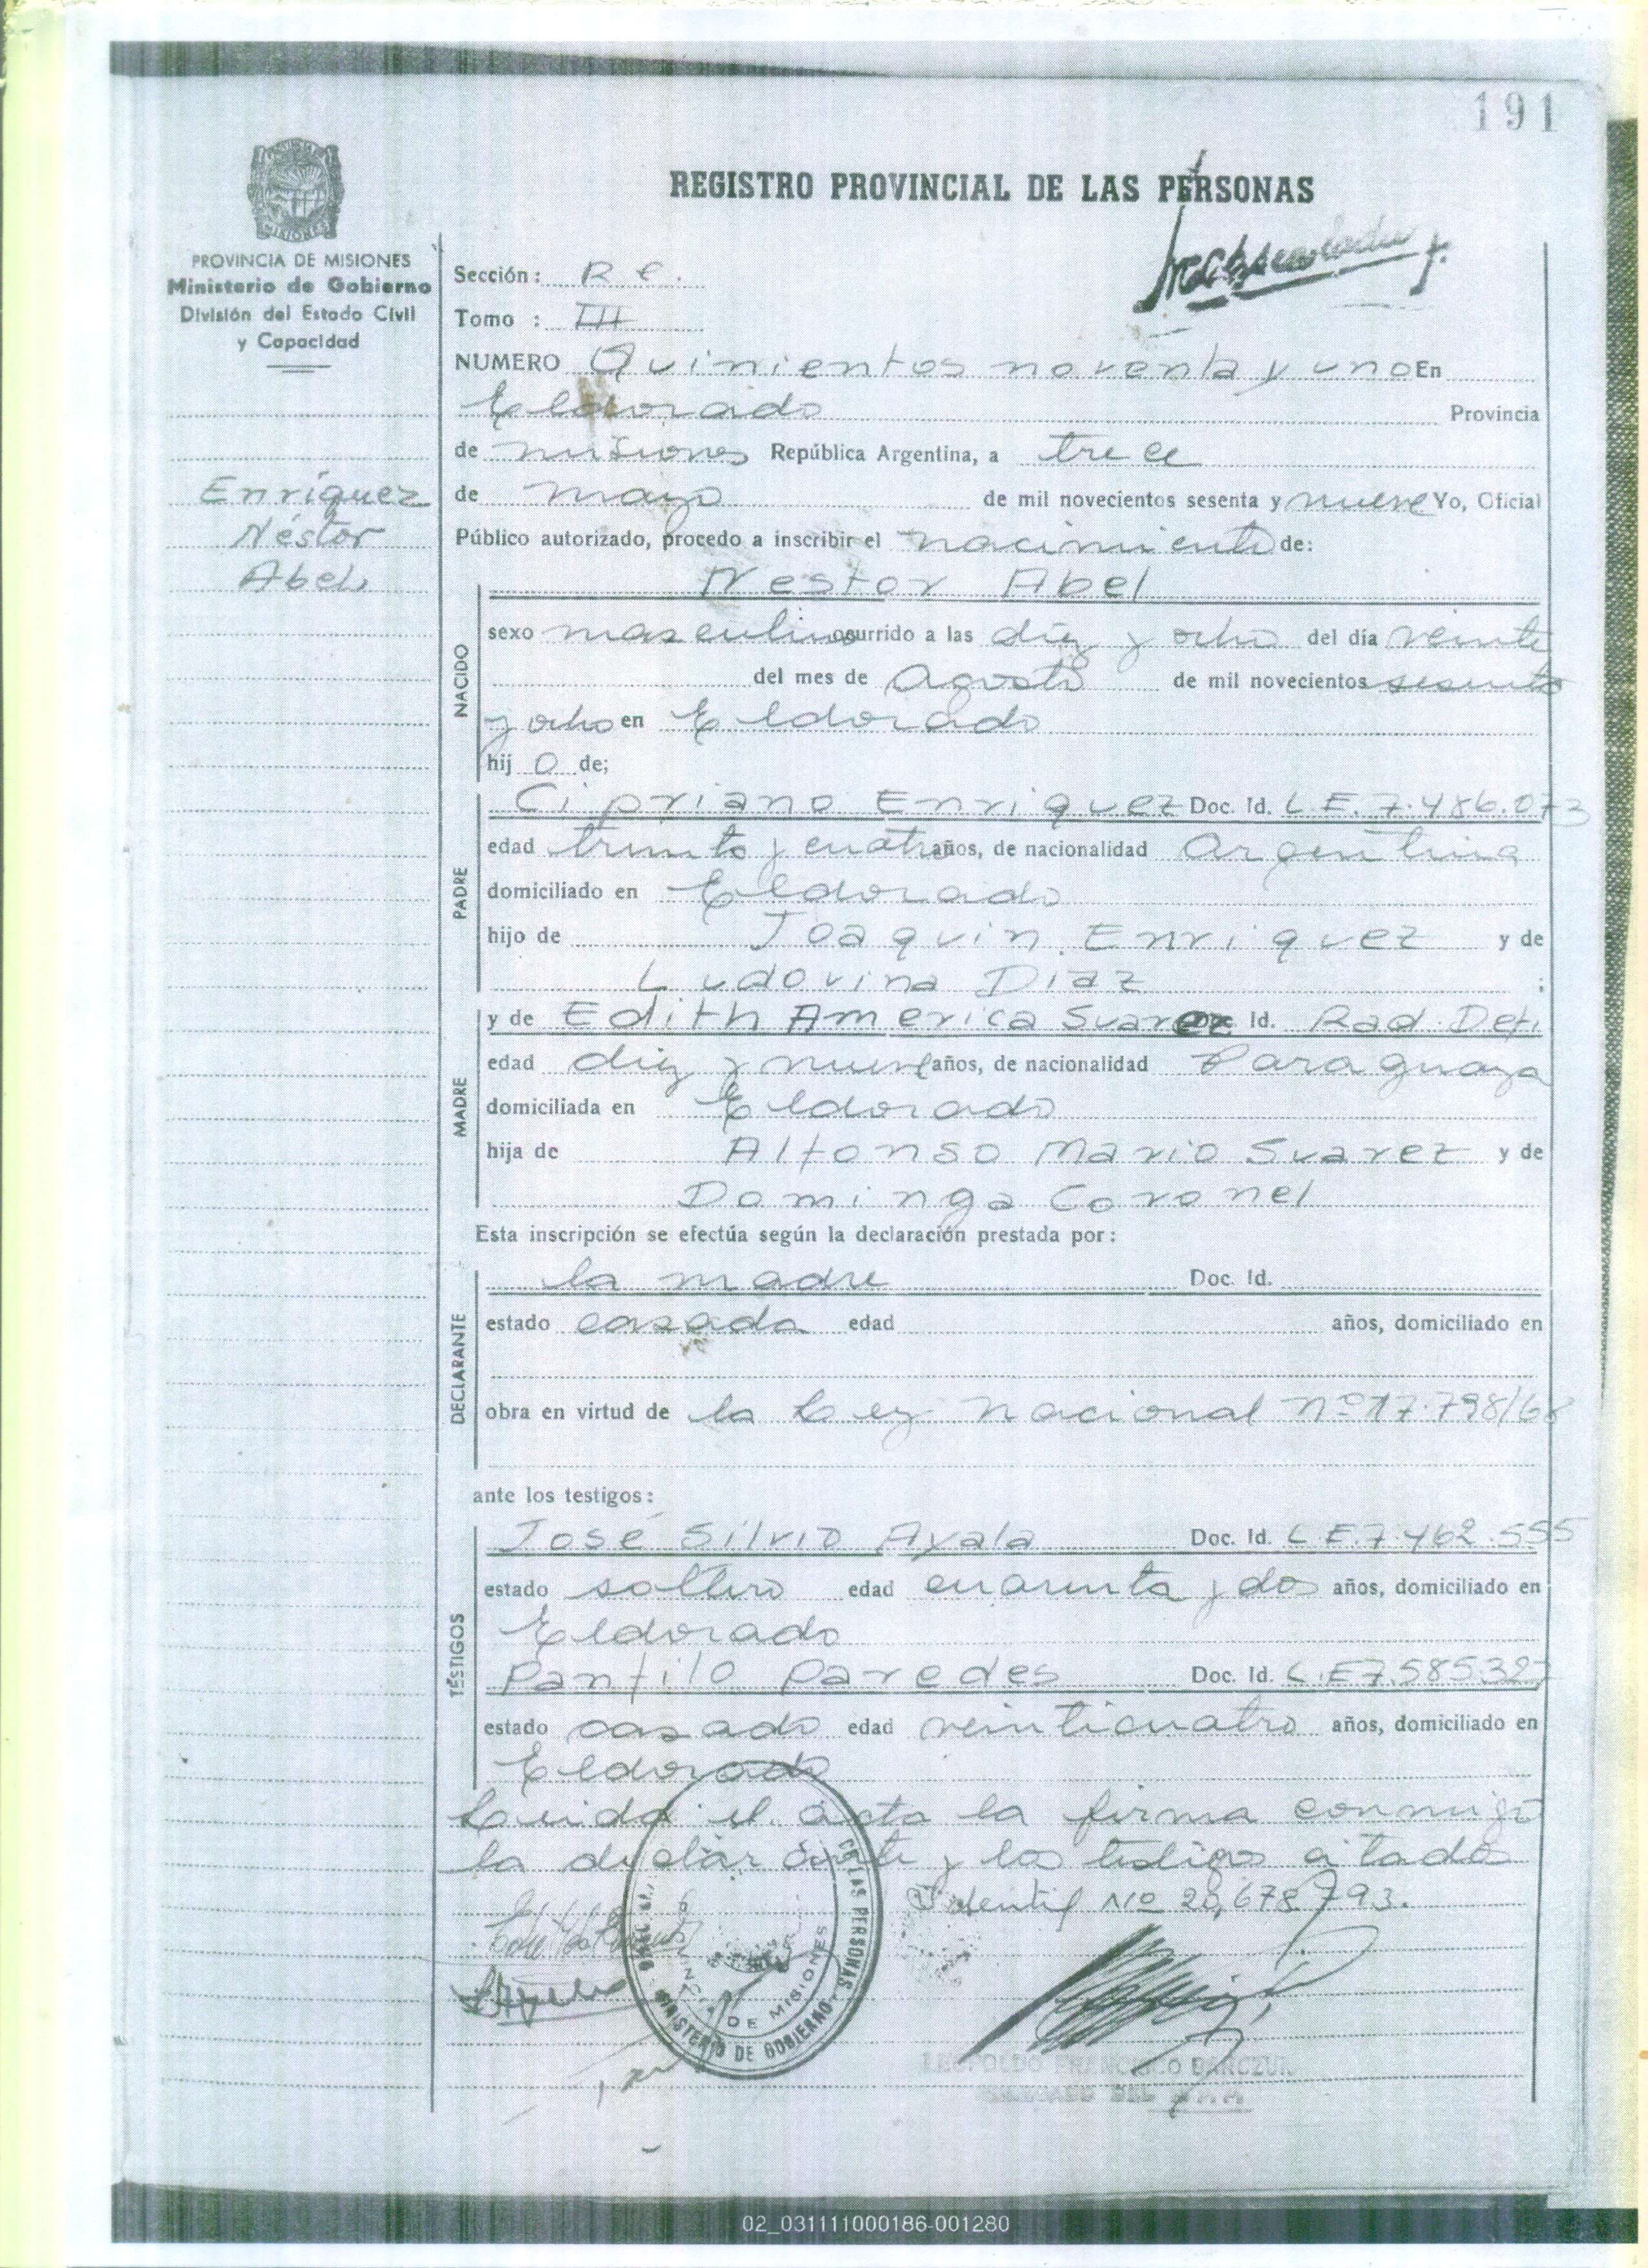 191
REGISTRO PROVINCIAL DE LAS PERSONAS
PROVINCIA DE MISIONES
Ministerio de Gobierno
División del Estado Civil
y Capacidad
Enriquez
Néstor
Abel
Sección: R e.
Tomo : III
NUMERO Quinientos noventa y uno En
Eldorado Provincia
de misiones República Argentina, a trece
de mayo de mil novecientos sesenta y nueve Yo, Oficial
Público autorizado, procedo a inscribir el nacimiento de:
Nestor Abel
NACIDO
sexo masculino ocurrido a las diez y ocho del día veinte
del mes de Agosto de mil novecientos sesenta
y ocho en Eldorado
hij o de;
PADRE
Cipriano Enriquez Doc. Id. L.E. 7.486.073
edad treinta y cuatro años, de nacionalidad Argentina
domiciliado en Eldorado
hijo de Joaquin Enriquez y de
Ludovina Diaz ;
MADRE
y de Edith America Suarez Doc. Id. Rad. Def.
edad diez y nueve años, de nacionalidad Paraguaya
domiciliada en Eldorado
hija de Alfonso Mario Suarez y de
Dominga Coronel
Esta inscripción se efectúa según la declaración prestada por:
DECLARANTE
la madre Doc. Id.
estado casada edad años, domiciliado en
obra en virtud de la Ley Nacional Nº 17.798/68
ante los testigos:
TESTIGOS
José Silvio Ayala Doc. Id. L.E. 7.462.555
estado soltero edad cuarenta y dos años, domiciliado en
Eldorado
Panfilo Paredes Doc. Id. L.E 7.585.327
estado casado edad veinticuatro años, domiciliado en
Eldorado
Leida el acta la firma conmigo
la declarante y los testigos citados
Identif Nº 20,678,793.
DE LAS PERSONAS
MINISTERIO DE GOBIERNO
PROVINCIA DE MISIONES
LEOPOLDO FRANCISCO
02_031111000186-001280